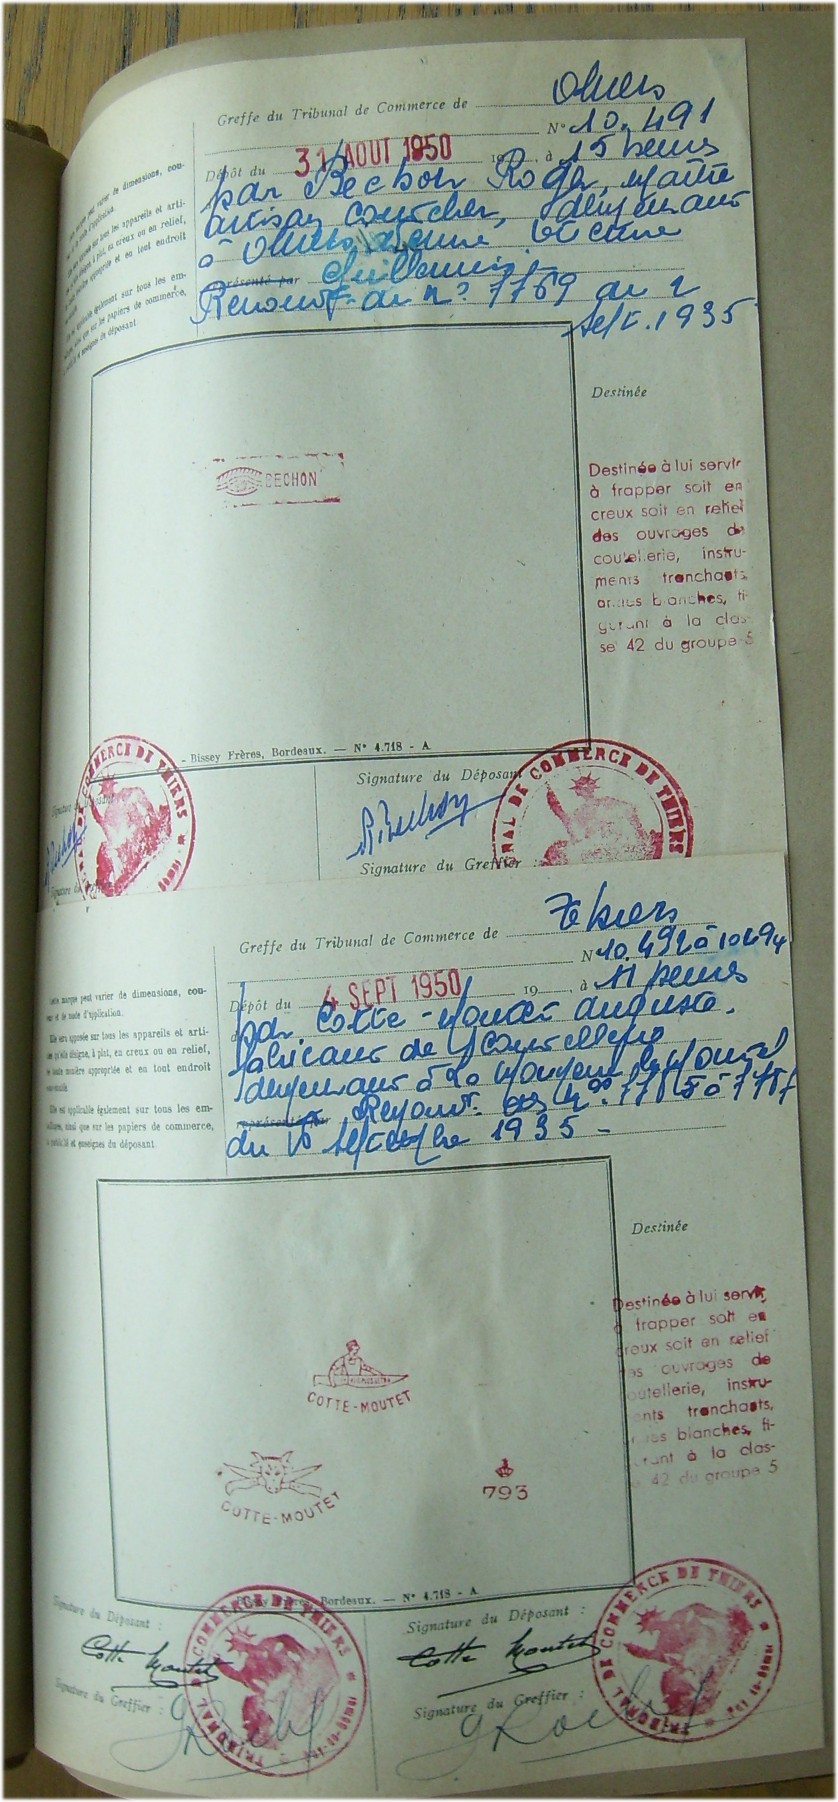 Greffe du Tribunal de Commerce de Thiers
N° 10.491
Dépôt du 31 AOUT 1950 19 , à 15 heures
par Bechon Roger, maitre
artisan coutelier, demeurant
à Thiers, avenue
présenté par
Renouvt. du n° 7769 du 2
Sept. 1935
varier de dimensions, cou-
d'application.
sur tous les appareils et arti-
à plat, en creux ou en relief,
appropriée et en tout endroit
également sur tous les em-
que sur les papiers de commerce,
et enseignes du déposant.
Destinée
BECHON
Destinée à lui servir
à frapper soit en
creux soit en relief
des ouvrages de
coutellerie, instru-
ments tranchants,
armes blanches, fi-
gurant à la clas-
se 42 du groupe 5
Bissey Frères, Bordeaux. — N° 4.718 - A
Signature du Déposant
Signature du Déposant
COMMERCE DE THIERS
TRIBUNAL DE COMMERCE DE THIERS
R Bechon
Signature du Greffier
Signature du Greffier :
Greffe du Tribunal de Commerce de Thiers
N° 10.492 à 10494
Dépôt du 4 SEPT 1950 19 , à 11 heures
par Cotte-Moutet Auguste.
fabricant de coutellerie
demeurant à La Monnerie
représenté par Renouvt. des nos
du septembre 1935 -
Cette marque peut varier de dimensions, cou-
leur et de mode d'application.
Elle sera apposée sur tous les appareils et arti-
cles qu'elle désigne, à plat, en creux ou en relief,
de toute manière appropriée et en tout endroit
Elle est applicable également sur tous les em-
ballages, ainsi que sur les papiers de commerce,
publicité et enseignes du déposant.
Destinée
COTTE-MOUTET
COTTE-MOUTET
793
Destinée à lui servir
à frapper soit en
creux soit en relief
des ouvrages de
coutellerie, instru-
ments tranchants,
armes blanches, fi-
gurant à la clas-
se 42 du groupe 5
Bissey Frères, Bordeaux. — N° 4.718 - A
Signature du Déposant :
Signature du Déposant :
Cotte Moutet
Cotte Moutet
Signature du Greffier :
Signature du Greffier :
TRIBUNAL DE COMMERCE DE THIERS
TRIBUNAL DE COMMERCE DE THIERS